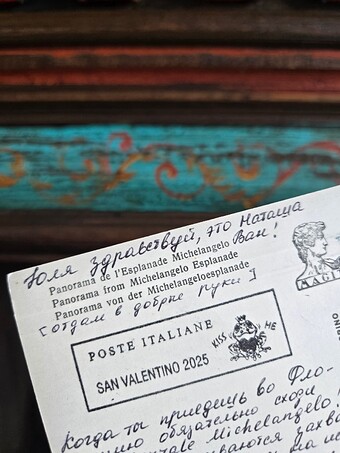 Юля здравствуй, это Наташа
Ван!
Panorama de l'Esplanade Michelangelo
Panorama from Michelangelo Esplanade
Panorama von der Michelangeloesplanade
[отдам в добрые руки]
POSTE ITALIANE
SAN VALENTINO 2025
KISS ME
Когда ты приедешь во Фло-
обязательно сходи
Michelangelo,